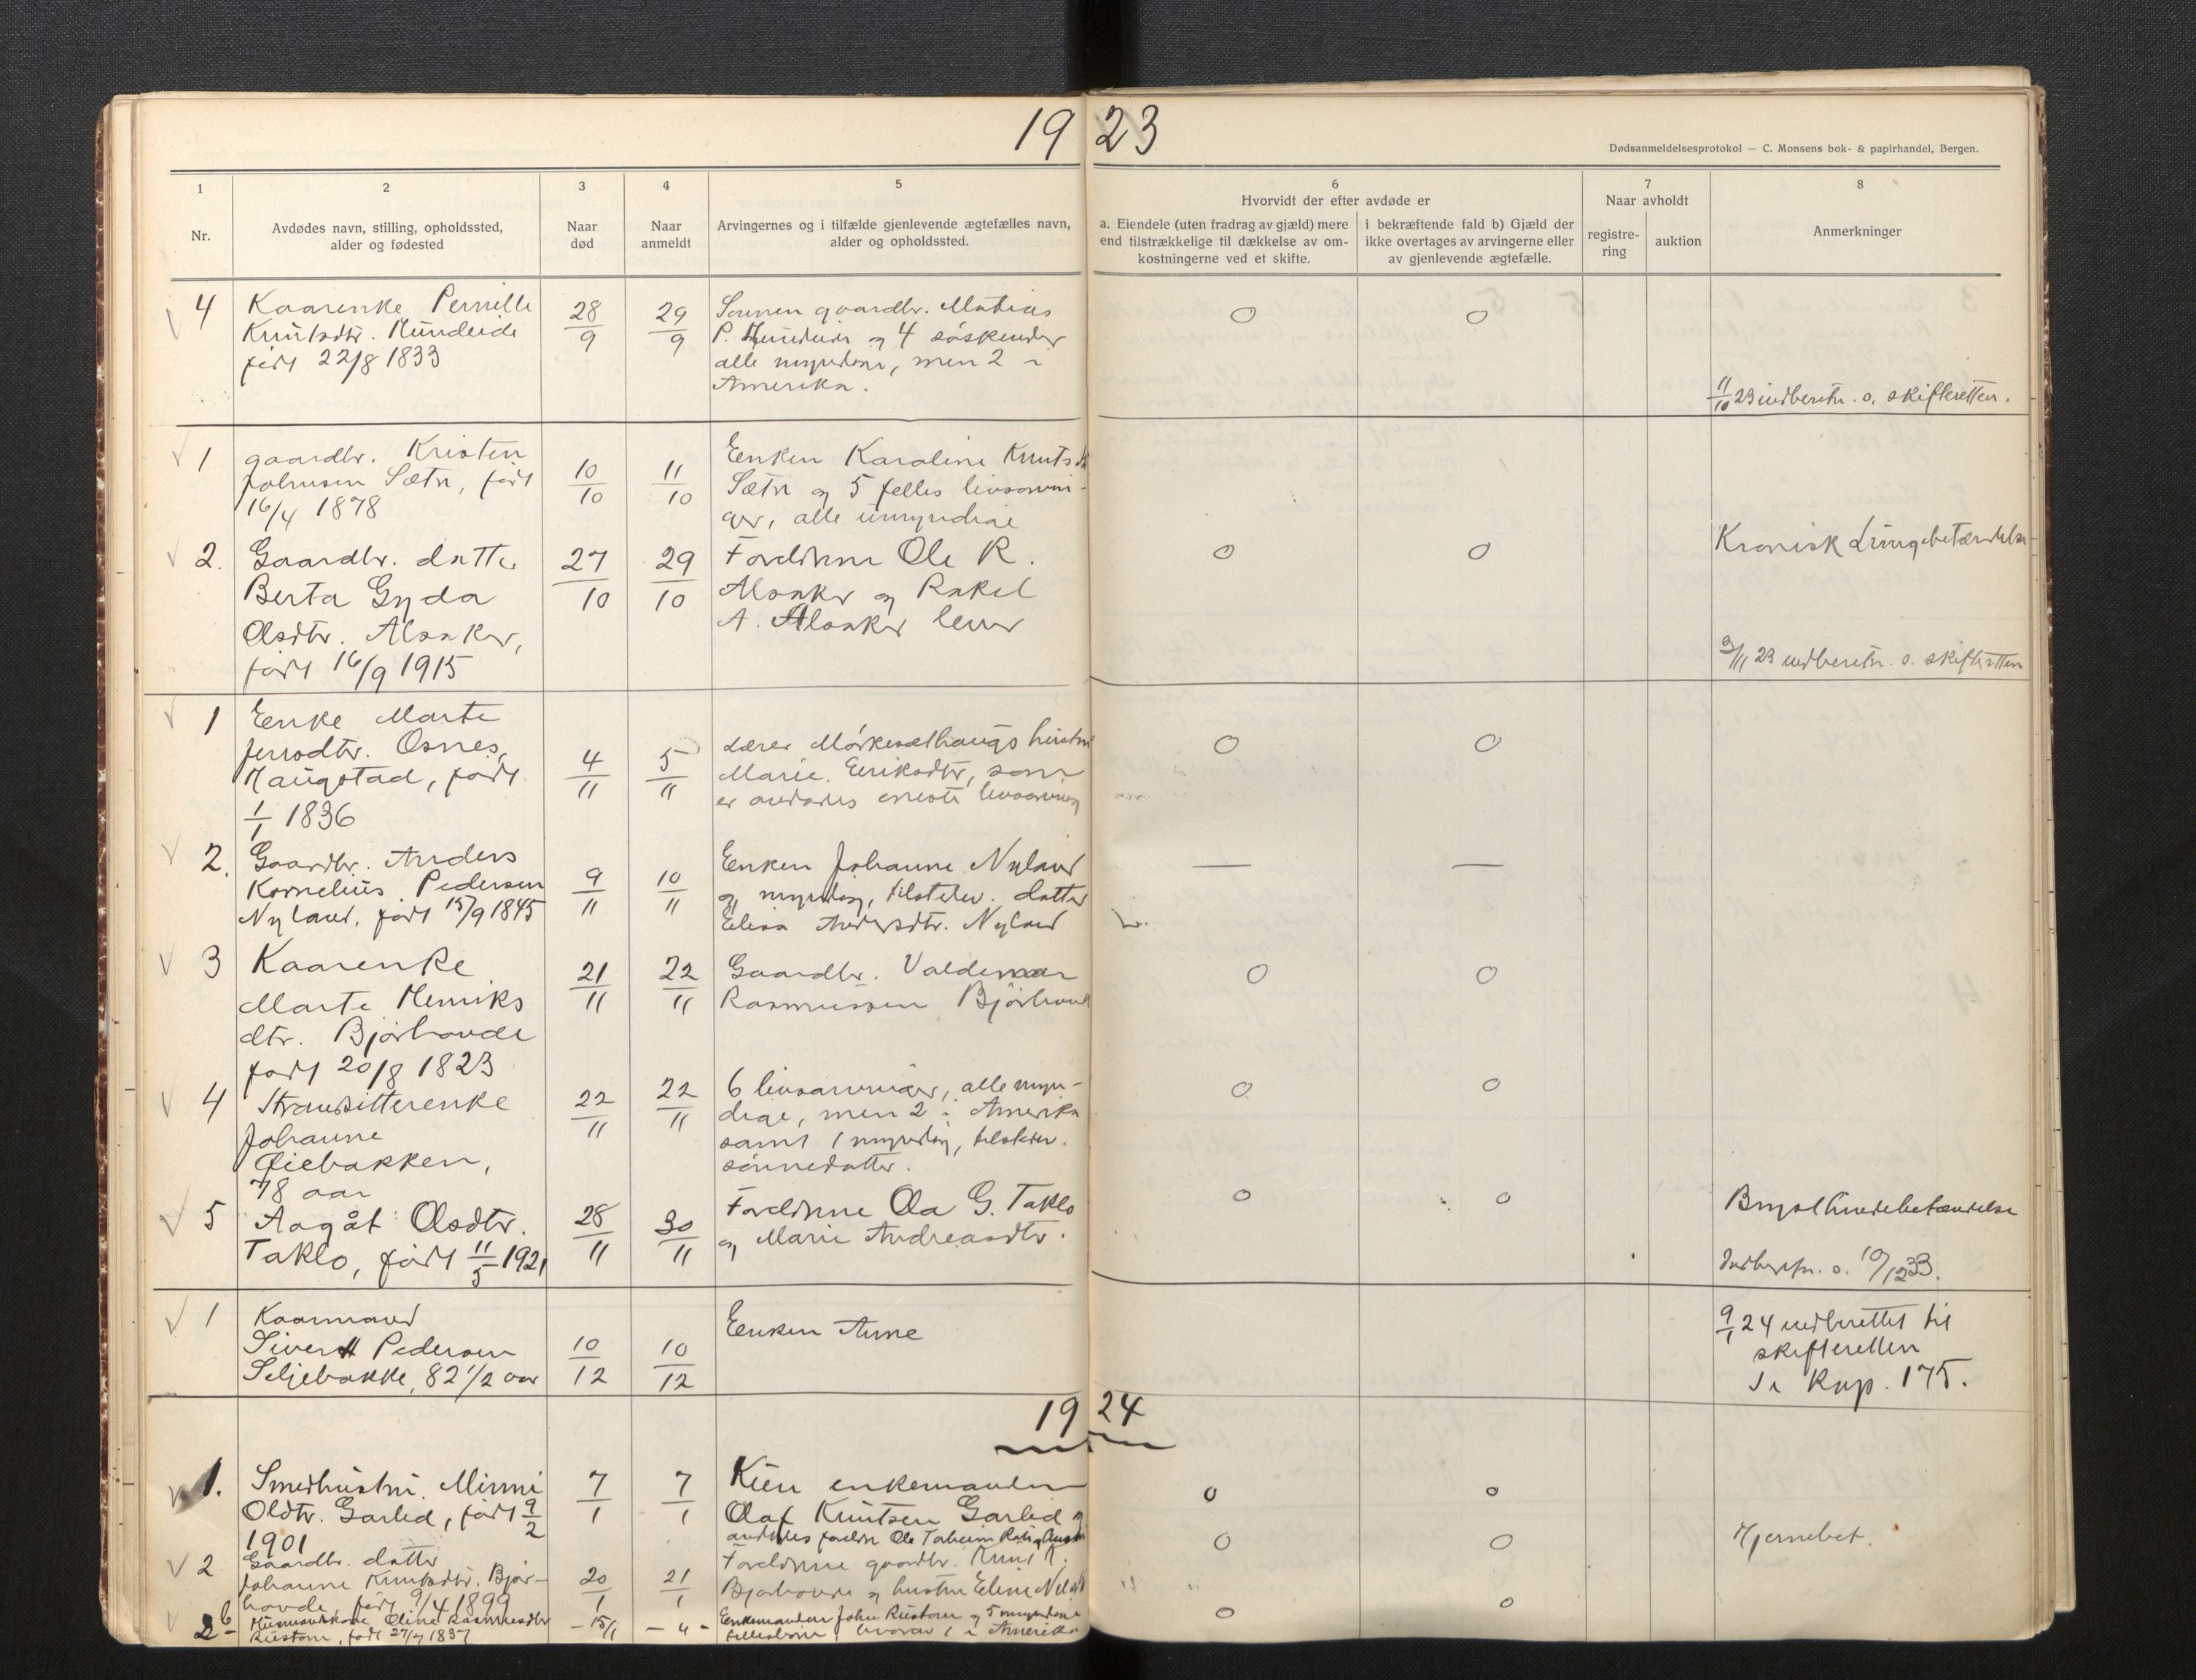 19 23
Dødsanmeldelsesprotokol — C. Monsens bok- & papirhandel, Bergen.
1
Nr.
2
Avdødes navn, stilling, opholdssted,
alder og fødested
3
Naar
død
4
Naar
anmeldt
5
Arvingernes og i tilfælde gjenlevende ægtefælles navn,
alder og opholdssted.
6
Hvorvidt der efter avdøde er
a. Eiendele (uten fradrag av gjæld) mere
end tilstrækkelige til dækkelse av om-
kostningerne ved et skifte.
i bekræftende fald b) Gjæld der
ikke overtages av arvingerne eller
av gjenlevende ægtefælle.
7
Naar avholdt
registre-
ring
auktion
8
Anmerkninger
4
Kaarenke Pernille
Knutsdtr. Mundeide
født 22/8 1833
28/9
29/9
Sønnen gaardbr. Matias
P. og 4 søskender
alle myndige, men 2 i
Amerika.
O
O
11/10 23 indberetn. s. skifteretten.
1
gaardbr. Kristen
Johnsen Sætr, født
16/4 1878
10/10
11/10
Enken Karoline Knutsdt
Sætr og 5 felles livsarvin-
ger, alle umyndige
2.
Gaardbr. datter
Berta Gyda
Olsdtr. Alsaker,
født 16/9 1915
27/10
29/10
Foreldrene Ole R.
Alsaker og Rakel
A. Alsaker lever
O
O
Kronisk Lungebetændelse
3/11 23 indberetn. s. skifteretten
1
Enke Marte
Jensdtr. Osnes,
Haugstad, født
1/1 1836
4/11
5/11
Lærer Mørkesethaugs hustru
Marie Eriksdtr, som
er avdødes eneste livsarving
O
O
2.
Gaardbr. Anders
Kornelius Pedersen
Nyland, født 15/9 1845
9/11
10/11
Enken Johanne Nyland
og myndig, tilstedev. datter
Elisa Andersdtr. Nyland
—
—
3
Kaarenke
Marte Henriks
dtr. Bjørhovde
født 20/8 1823
21/11
22/11
Gaardbr. Valdemar
Rasmussen Bjørhovd
O
O
4
Strandsitterenke
Johanne
Øiebakken,
78 aar
22/11
22/11
6 livsarvinger, alle myn-
dige, men 2 i Amerika
samt 1 myndig, tilstedev.
sønnedatter.
O
O
5
Aagåt Olsdtr.
Taklo, født 11/5 1921
28/11
30/11
Foreldrene Ola G. Taklo
og Marie Andreasdtr.
O
O
Brysthindebetændelse
Indberetn. s. 10/12 23.
1
Kaarmand
Sivert Pedersen
Seljebakke, 82 1/2 aar
10/12
10/12
Enken Anne
9/1 24 indberettet til
skifteretten
Se Kop. 175.
19 24
1.
Smedhustru Minni
Oldtr. Garlid, født 9/2
1901
7/1
7/1
Kun enkemanden
Olaf Knutsen Garlid og
avdødes foreldre Ole
O
O
2
Gaardbr. datter
Johanne Knutsdtr. Bjør-
hovde, født 9/4 1899
20/1
21/1
Foreldrene gaardbr. Knut R.
Bjørhovde og hustru Eline
O
O
Hjernebet.
2 b
Husmandskone Oline Rasmusdtr
Rustøen, født 27/7 1837
- 15/1
- " -
Enkemanden John Rustøen og 5 myndige
fellesbørn, hvorav 1 i Amerika
O
O